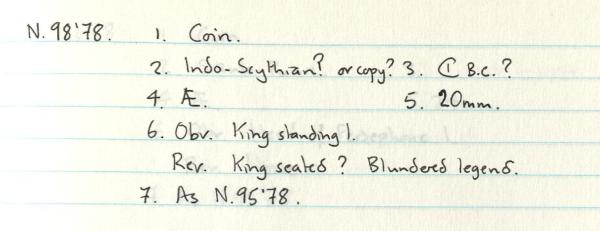 N.98'78. 1. Coin.
2. Indo-Scythian? or copy? 3. C1 B.C.?
4. Æ. 5. 20mm.
6. Obv. King standing l.
Rev. King seated? Blundered legend.
7. As N.95'78.